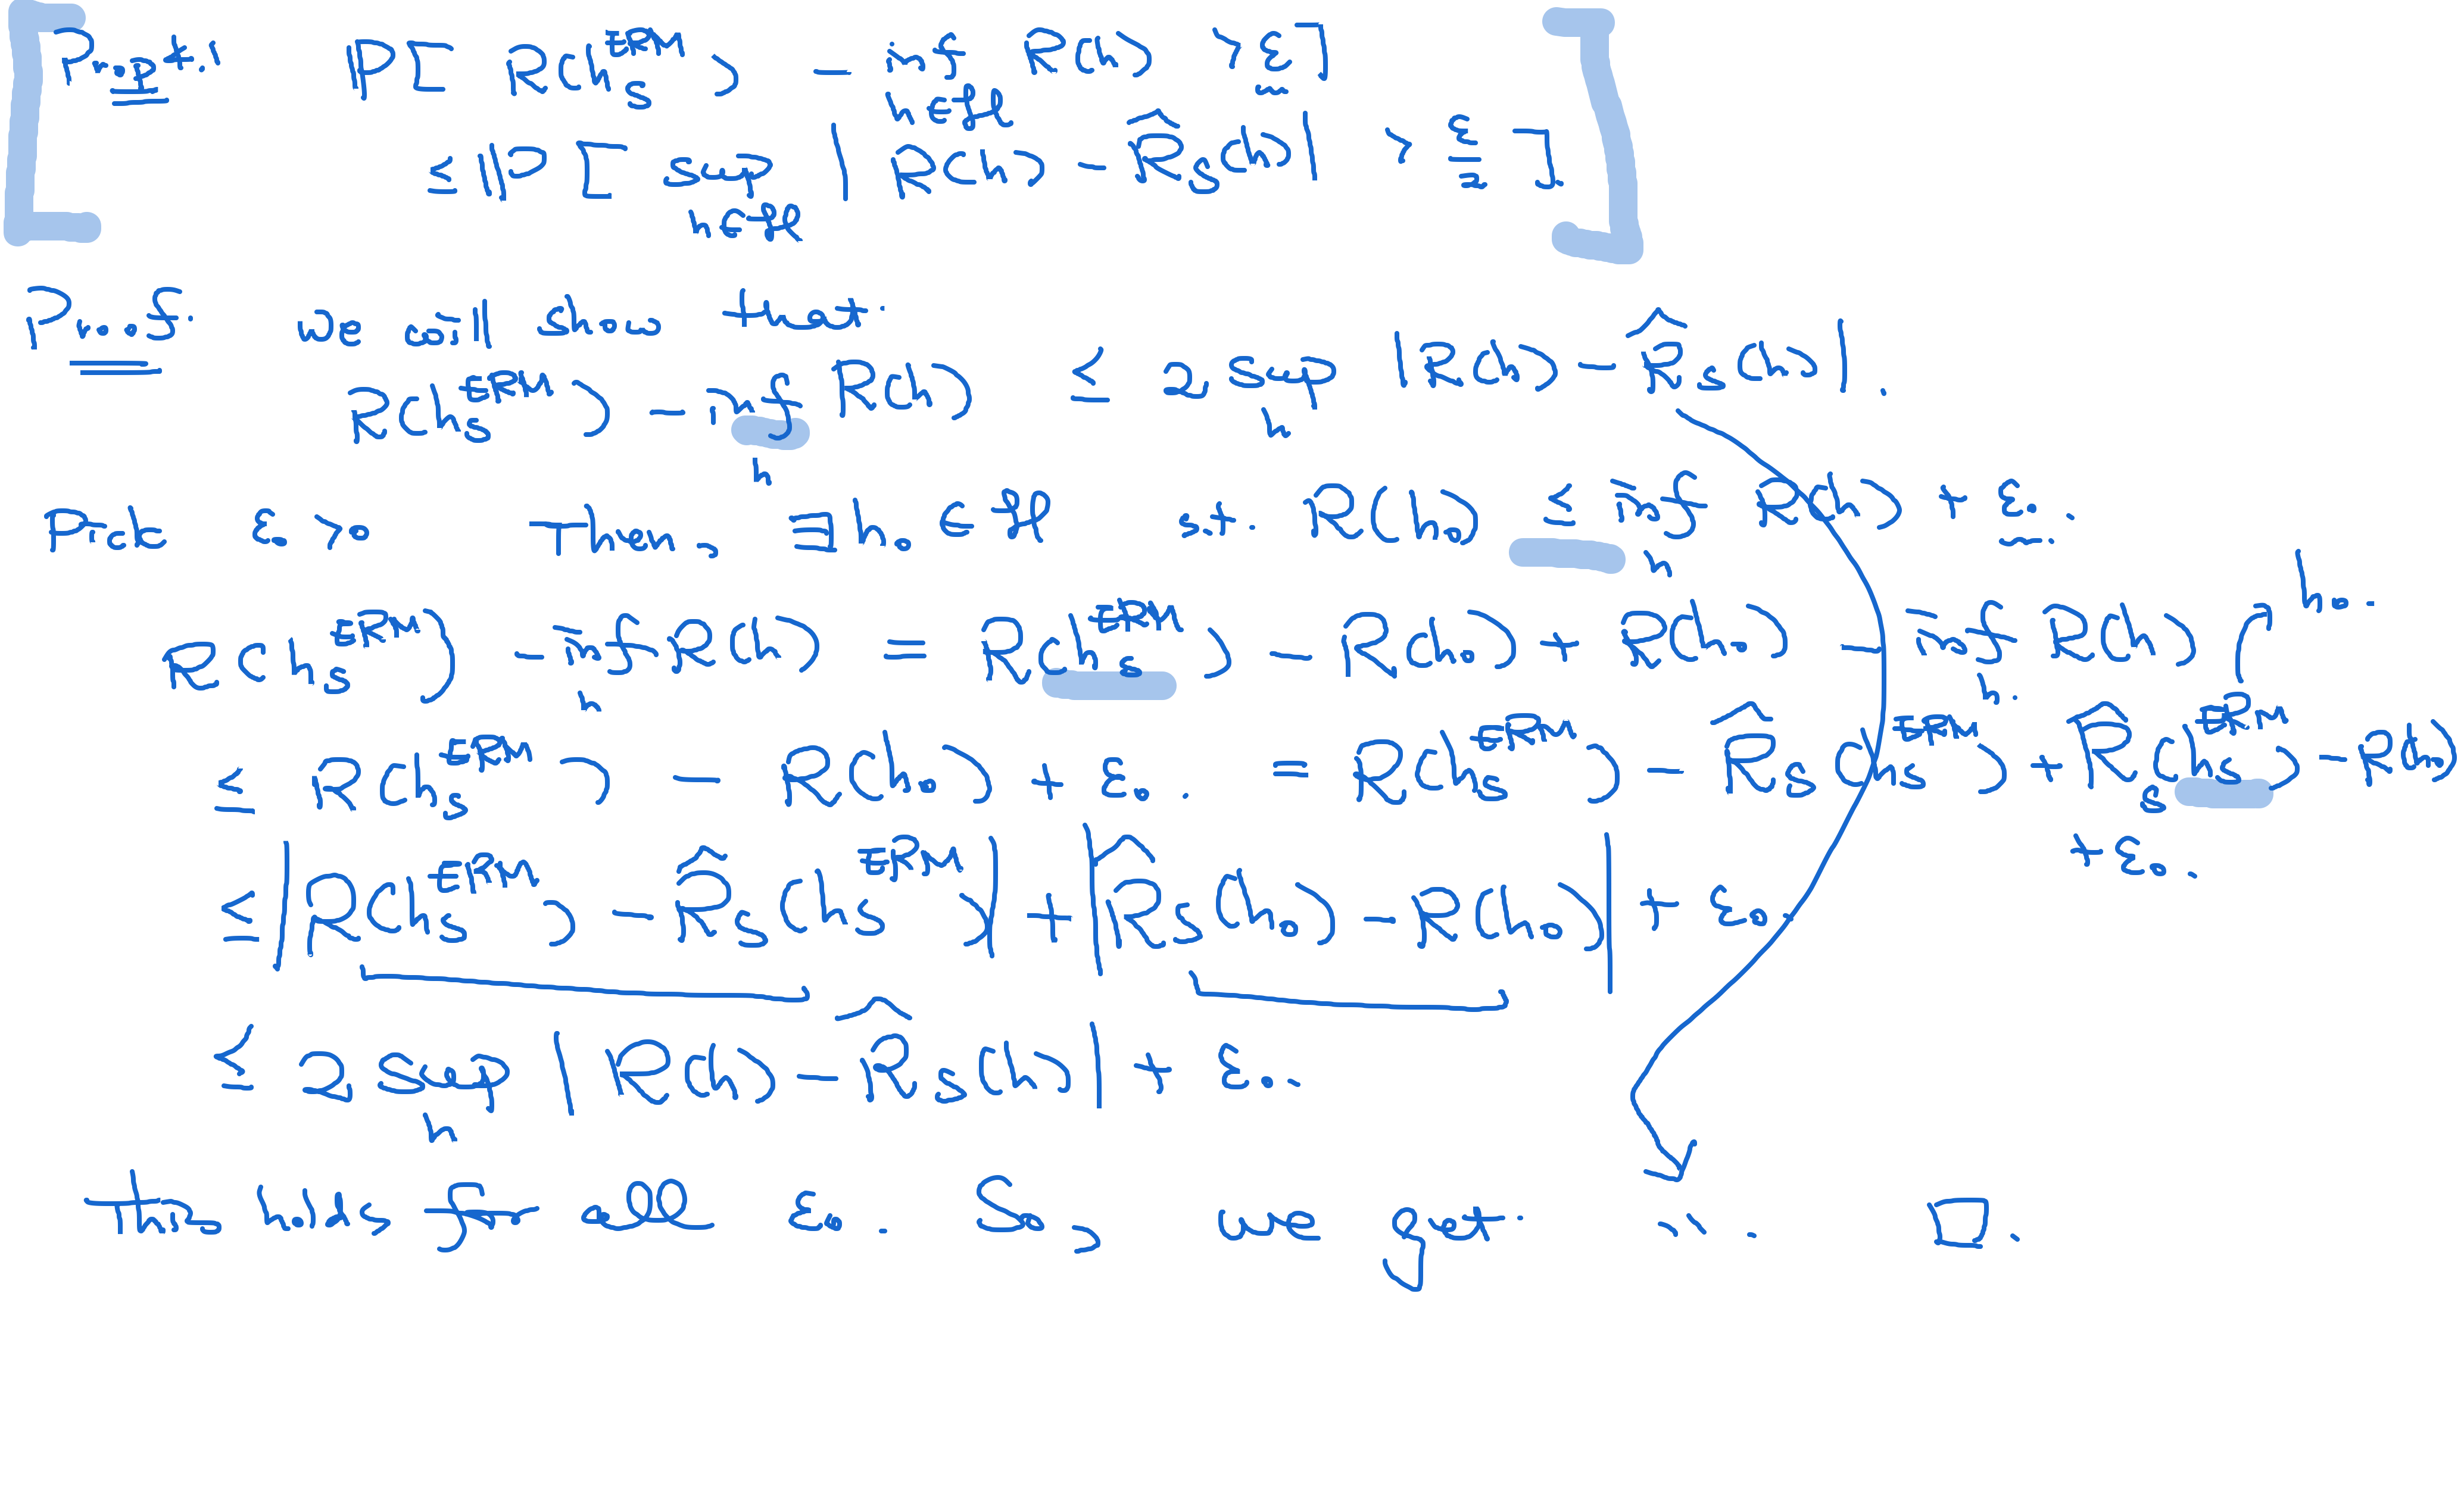 Prop^t: P[ R(h_S^{ERM}) - inf_{h∈H} R(h) > ε ]
≤ P[ sup_{h∈H} | R(h) - R̂_S(h) | > ε/2 ].
Proof. we will show that
R(h_S^{ERM}) - inf_h R(h) ≤ 2 sup_h | R(h) - R̂_S(h) |.
Pick ε₀ > 0 Then, ∃ h₀ ∈ H s.t. R(h₀) ≤ inf_h R(h) + ε₀.
R(h_S^{ERM}) - inf_h R(h) = R(h_S^{ERM}) - R(h₀) + R(h₀) - inf_h R(h) h₀.
≤ R(h_S^{ERM}) - R(h₀) + ε₀. = R(h_S^{ERM}) - R̂_S(h_S^{ERM}) + R̂_S(h_S^{ERM}) - R(h₀)
+ ε₀.
≤ | R(h_S^{ERM}) - R̂_S(h_S^{ERM}) | + | R̂_S(h₀) - R(h₀) | + ε₀.
≤ 2 sup_h | R(h) - R̂_S(h) | + ε₀.
This holds for all ε₀. So, we get. □.